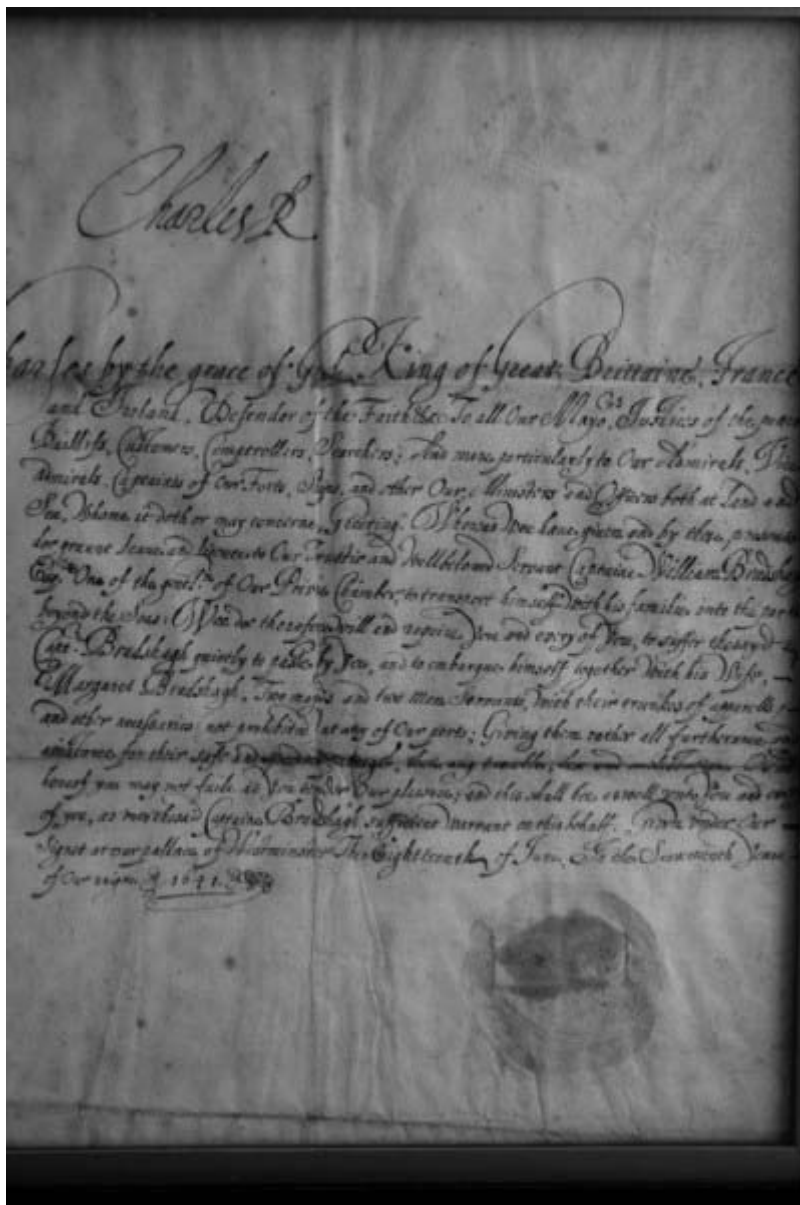 Charles R
harles by the grace of God King of Great Brittaine, France
and Ireland, Defender of the Faith &c To all Our Mayors, Justices of the peace
Bailliffs, Customers, Comptrollers, Searchers; And more particularly to Our Admirals, Vice
admirals, Captaines of Our Forts, Ships, and other Our Ministers and Officers both at Land and
Sea, whome it doth or may concerne, Greeting. Whereas Wee have given and by these presents
doe graunt leave and licence to Our Trustie and Wellbeloved Servant Captaine William Bradshagh
Esqr. One of the gentlm of Our Privie Chamber, to transport himself with his familie into the parts
beyond the Seas: Wee doe therefore will and require you and every of you, to suffer the sayd
Capt. Bradshagh quietly to passe by you, and to embarque himself together with his Wife,
Margaret Bradshagh, Two mayds and two Men Servants, with their trunkes of apparell
and other necessaries not prohibited at any of Our ports; Giving them rather all furtherance and
for their safe any trouble,
hereof you may not faile as you tender Our pleasure; and this shall be as well unto you and every
of you, as to the said Captaine Bradshagh sufficient warrant on this behalf. Given under Our
Signet at our pallace of Westminster The Eighteenth of June, In the Seventeenth yeare
of Our reigne 1641